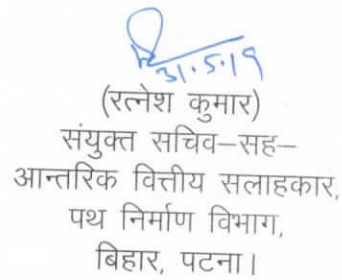 31.5.19
(रत्नेश कुमार)
संयुक्त सचिव–सह–
आन्तरिक वित्तीय सलाहकार,
पथ निर्माण विभाग,
बिहार, पटना।